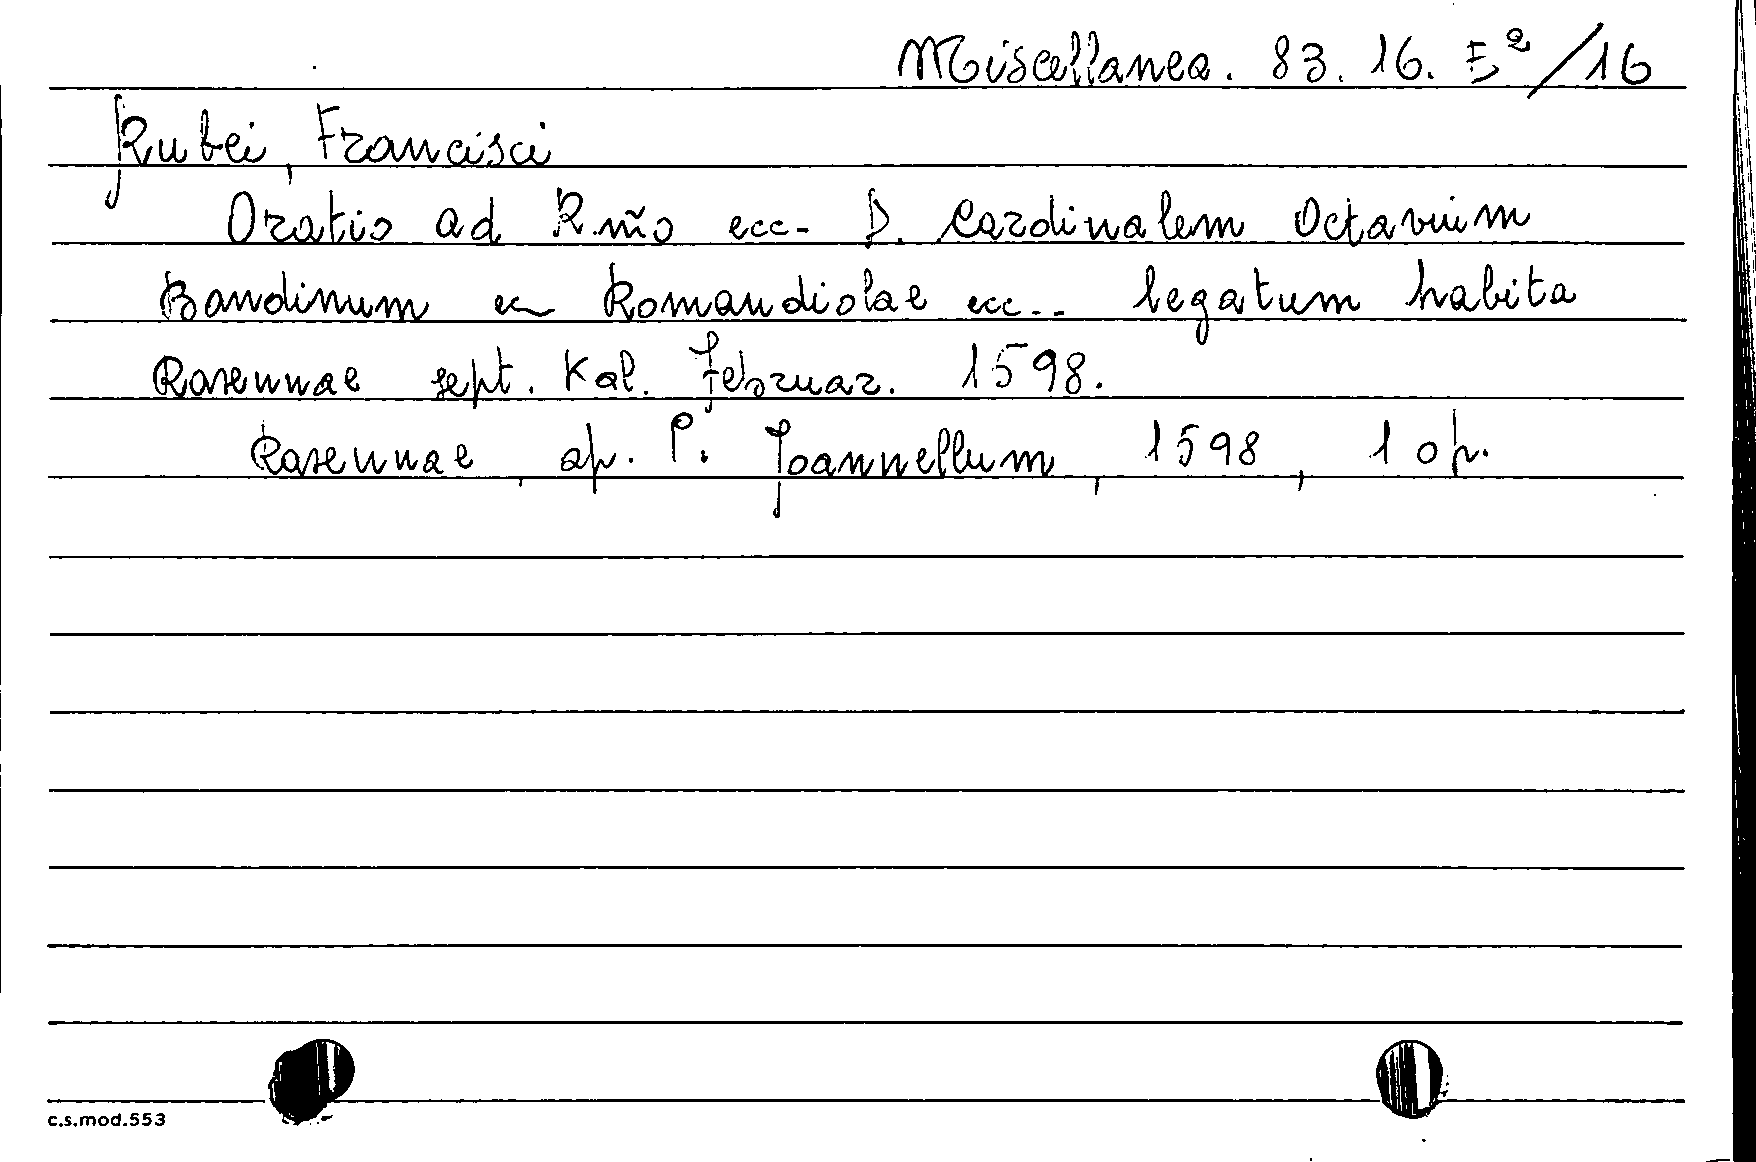 Miscellanea. 83. 16. E²/16
Rubei, Francisci
Oratio ad R.mo ecc- D. Cardinalem Octavium
Bandinum ec Romandiolae ecc... legatum habita
Ravennae sept. Kal. Februar. 1598.
Ravennae, ap. P. Joannellum, 1598, 1 op.
c.s.mod.553